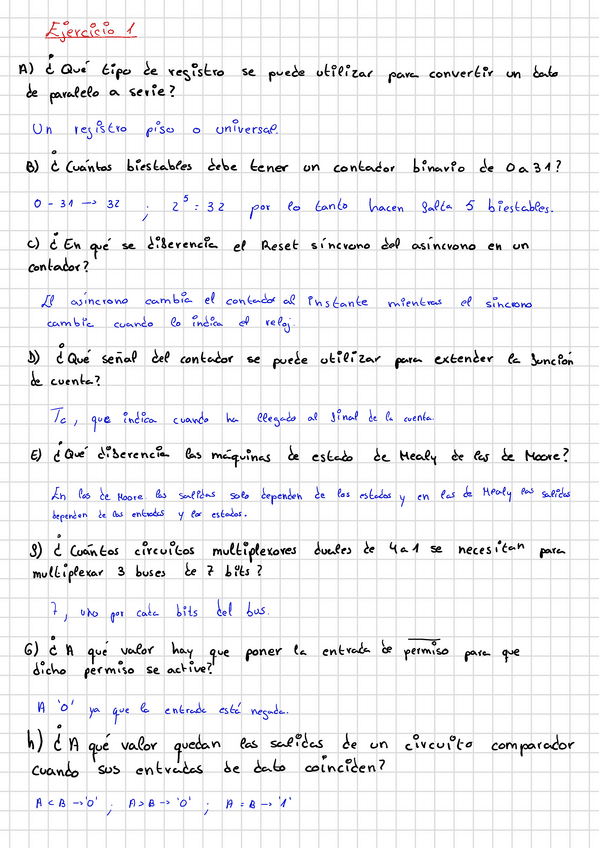 Ejercicio 1
A) ¿Qué tipo de registro se puede utilizar para convertir un dato
de paralelo a serie?
Un registro piso o universal.
B) ¿Cuántos biestables debe tener un contador binario de 0 a 31?
0 - 31 → 32 ; 2^5 = 32 por lo tanto hacen falta 5 biestables.
C) ¿En qué se diferencia el Reset síncrono del asíncrono en un
contador?
El asíncrono cambia el contador al instante mientras el síncrono
cambia cuando lo indica el reloj.
D) ¿Qué señal del contador se puede utilizar para extender la función
de cuenta?
Tc, que indica cuando ha llegado al final de la cuenta.
E) ¿Qué diferencia las máquinas de estado de Mealy de las de Moore?
En las de Moore las salidas solo dependen de los estados y en las de Mealy las salidas
dependen de las entradas y los estados.
f) ¿Cuántos circuitos multiplexores duales de 4 a 1 se necesitan para
multiplexar 3 buses de 7 bits?
7, uno por cada bits del bus.
G) ¿A qué valor hay que poner la entrada de p̅e̅r̅m̅i̅s̅o̅ para que
dicho permiso se active?
A '0' ya que la entrada está negada.
h) ¿A qué valor quedan las salidas de un circuito comparador
cuando sus entradas de dato coinciden?
A < B → '0' ; A > B → '0' ; A = B → '1'